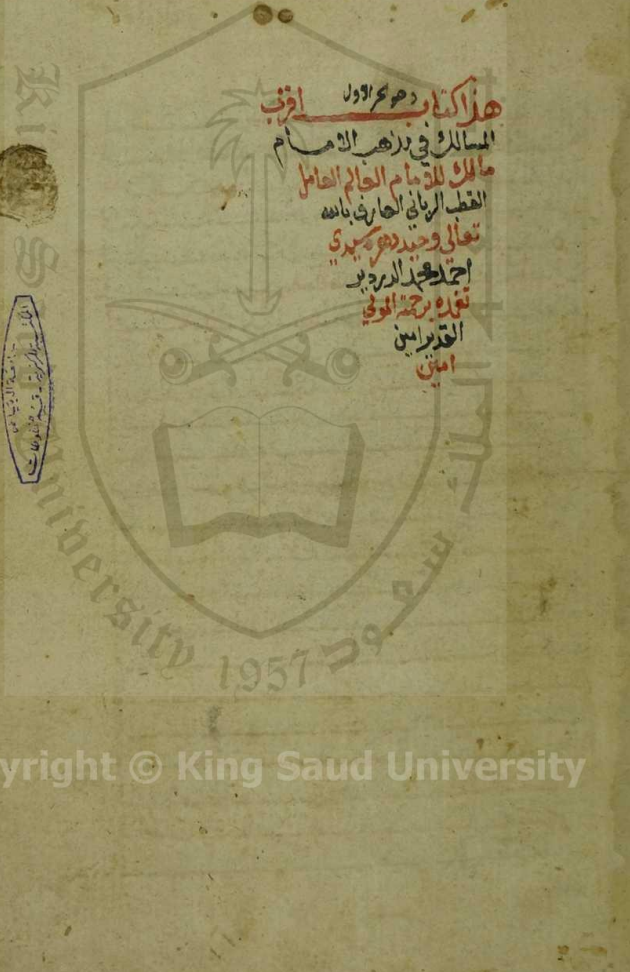 وهو الجزء الاول
هذا كتاب اقرب
المسالك في مذاهب الامام
مالك للامام العالم العامل
القطب الرباني العارف بالله
تعالى وحيد دهره سيدي
احمد محمد الدردير
تغمده برحمة المولي
القدير امين
امين
King Saud University
1957
جامعة الملك سعود
yright © King Saud University